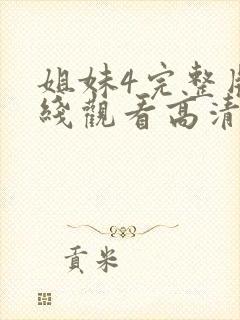 姐妹4完整
綫觀看高清
貢米